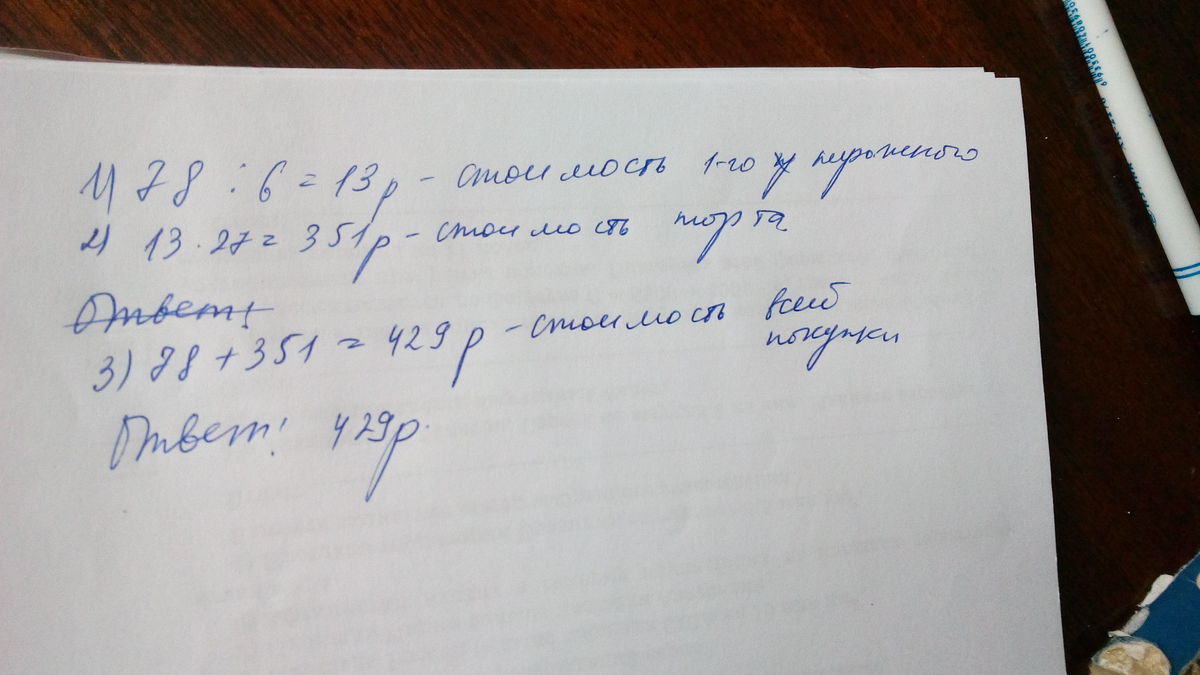 1) 78 : 6 = 13р - стоимость 1-го пирожного
2) 13 · 27 = 351р - стоимость торта
Ответ:
3) 78 + 351 = 429р - стоимость всей
покупки
Ответ: 429р.